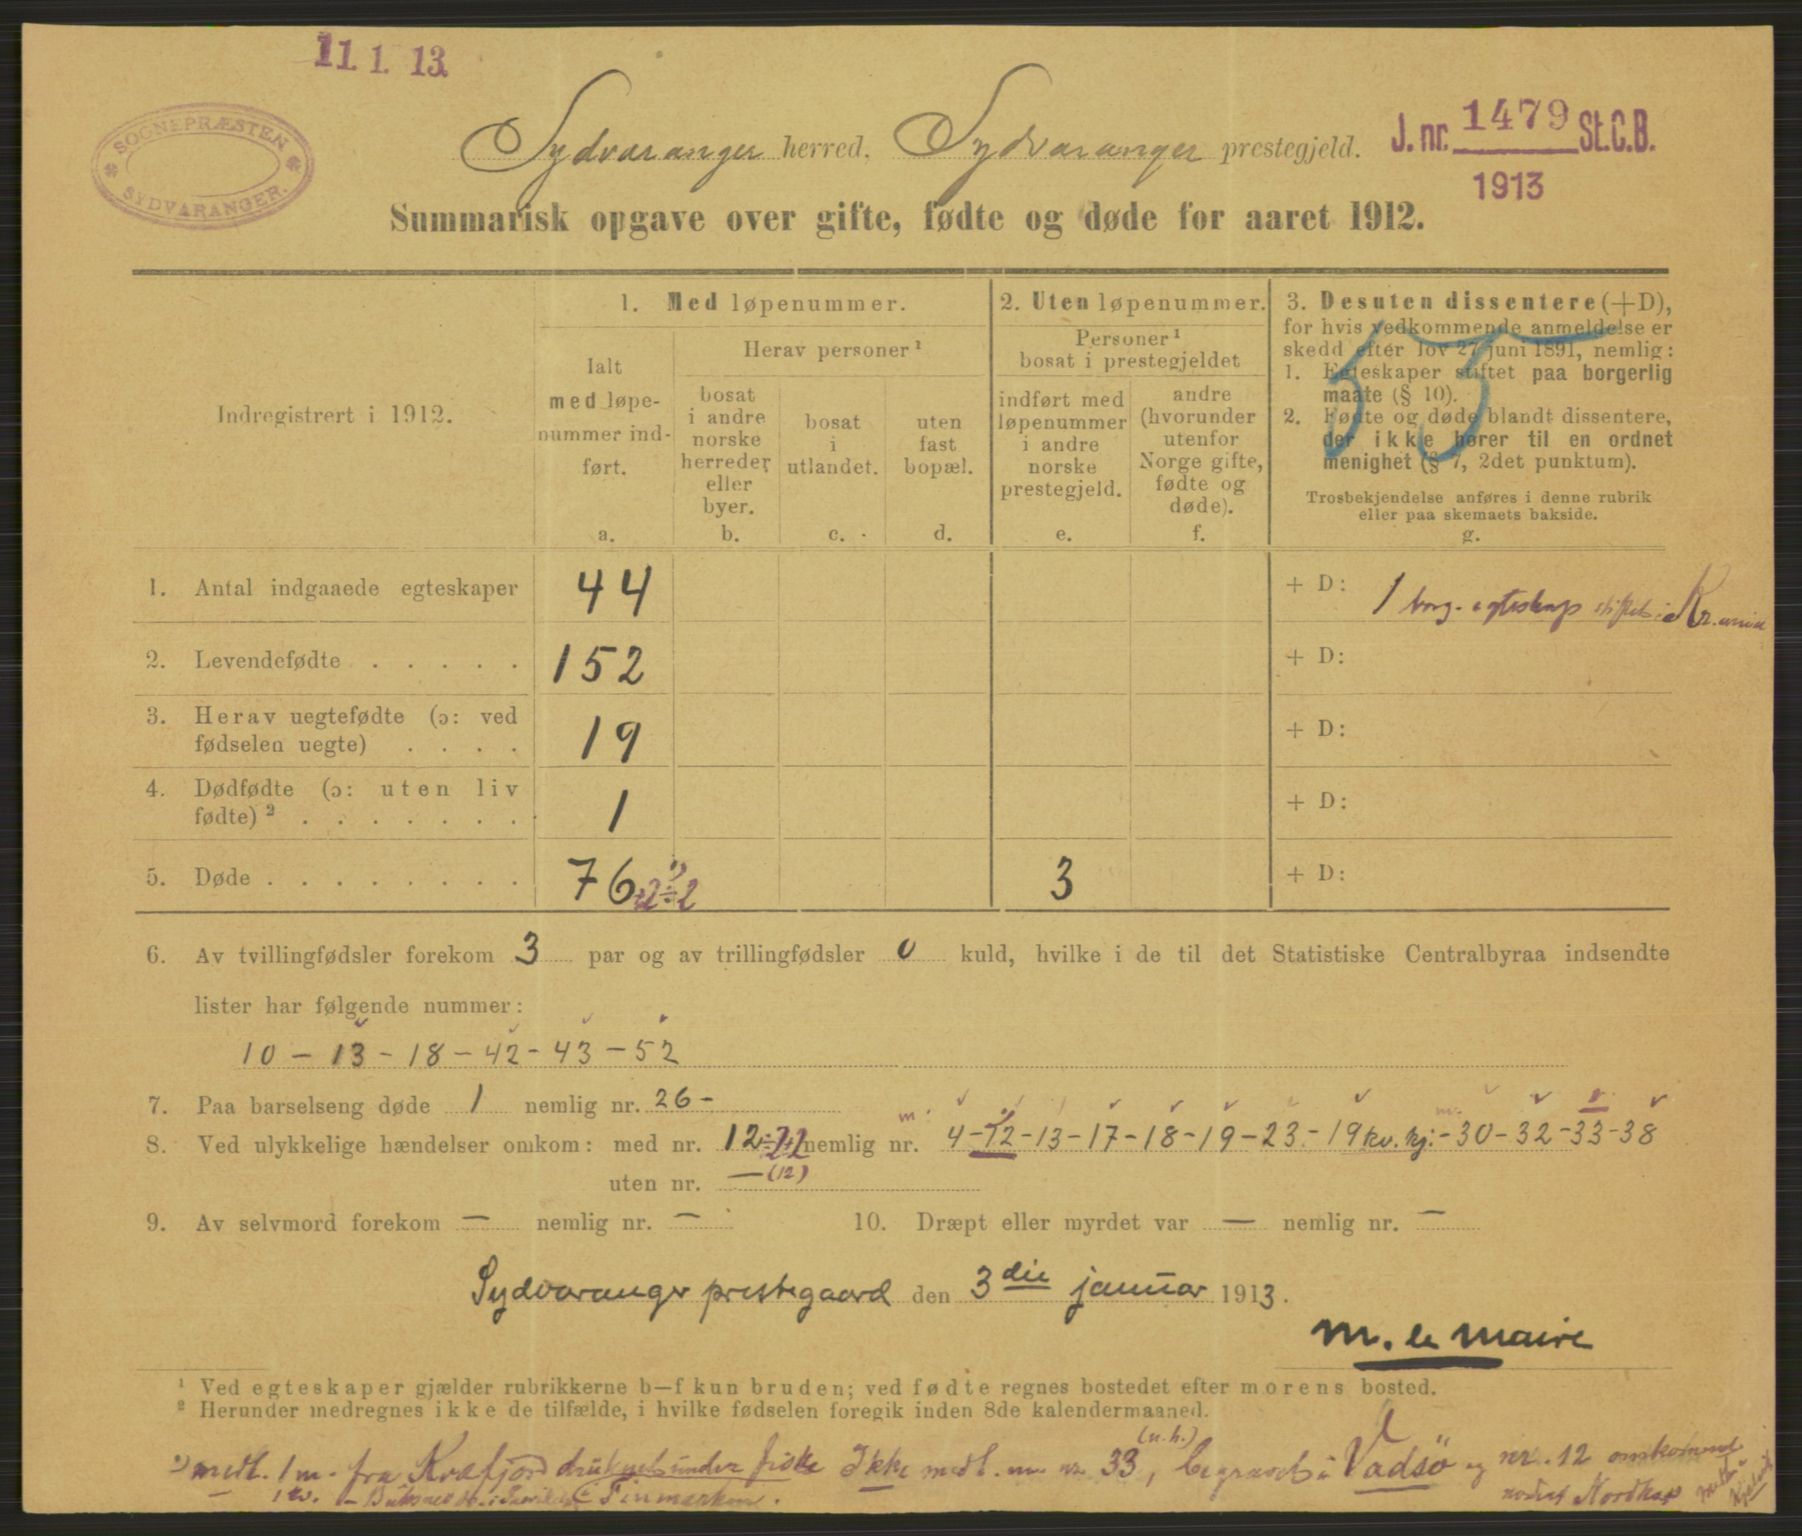 11. 1. 13.
SOGNEPRÆSTEN
SYDVARANGER.
Sydvaranger herred, Sydvaranger prestegjeld.
J. nr. 1479 St.C.B.
1913
Summarisk opgave over gifte, fødte og døde for aaret 1912.
Indregistrert i 1912.
1. Med løpenummer.
Ialt
med løpe-
nummer ind-
ført.
a.
Herav personer ¹
bosat
i andre
norske
herreder
eller
byer.
b.
bosat
i
utlandet.
c.
uten
fast
bopæl.
d.
2. Uten løpenummer.
Personer ¹
bosat i prestegjeldet
indført med
løpenummer
i andre
norske
prestegjeld.
e.
andre
(hvorunder
utenfor
Norge gifte,
fødte og
døde).
f.
3. Desuten dissentere (+D),
for hvis vedkommende anmeldelse er
skedd efter lov 27 juni 1891, nemlig:
1. Egteskaper stiftet paa borgerlig
maate (§ 10).
2. Fødte og døde blandt dissentere,
der ikke hører til en ordnet
menighet (§ 7, 2det punktum).
Trosbekjendelse anføres i denne rubrik
eller paa skemaets bakside.
g.
1. Antal indgaaede egteskaper 44 + D: 1 borg. egteskap stiftet i Kr.ania
2. Levendefødte . . . . . 152 + D:
3. Herav uegtefødte (ɔ: ved
fødselen uegte) . . . . 19 + D:
4. Dødfødte (ɔ: uten liv
fødte) ² . . . . . . . 1 + D:
5. Døde . . . . . . . . 76 +2÷2 ¹) 3 + D:
6. Av tvillingfødsler forekom 3 par og av trillingfødsler 0 kuld, hvilke i de til det Statistiske Centralbyraa indsendte
lister har følgende nummer:
10 – 13 – 18 – 42 – 43 – 52
7. Paa barselseng døde 1 nemlig nr. 26 –
8. Ved ulykkelige hændelser omkom: med nr. 12 ÷2+2 nemlig nr. 4 – 12 – 13 – 17 – 18 – 19 – 23 – 19 kv. kj. – 30 – 32 – 33 – 38
uten nr. — (12)
9. Av selvmord forekom — nemlig nr. — 10. Dræpt eller myrdet var — nemlig nr. —
Sydvaranger prestegaard den 3die januar 1913.
M. le Maire
¹ Ved egteskaper gjælder rubrikkerne b—f kun bruden; ved fødte regnes bostedet efter morens bosted.
² Herunder medregnes ikke de tilfælde, i hvilke fødselen foregik inden 8de kalendermaaned.
¹) medt. 1 m. fra Kvæfjord druknet under fiske Ikke medt. m. nr. 33, (u.h.) begravet i Vadsö og nr. 12 omkommet
Finmarken.
Nordkap